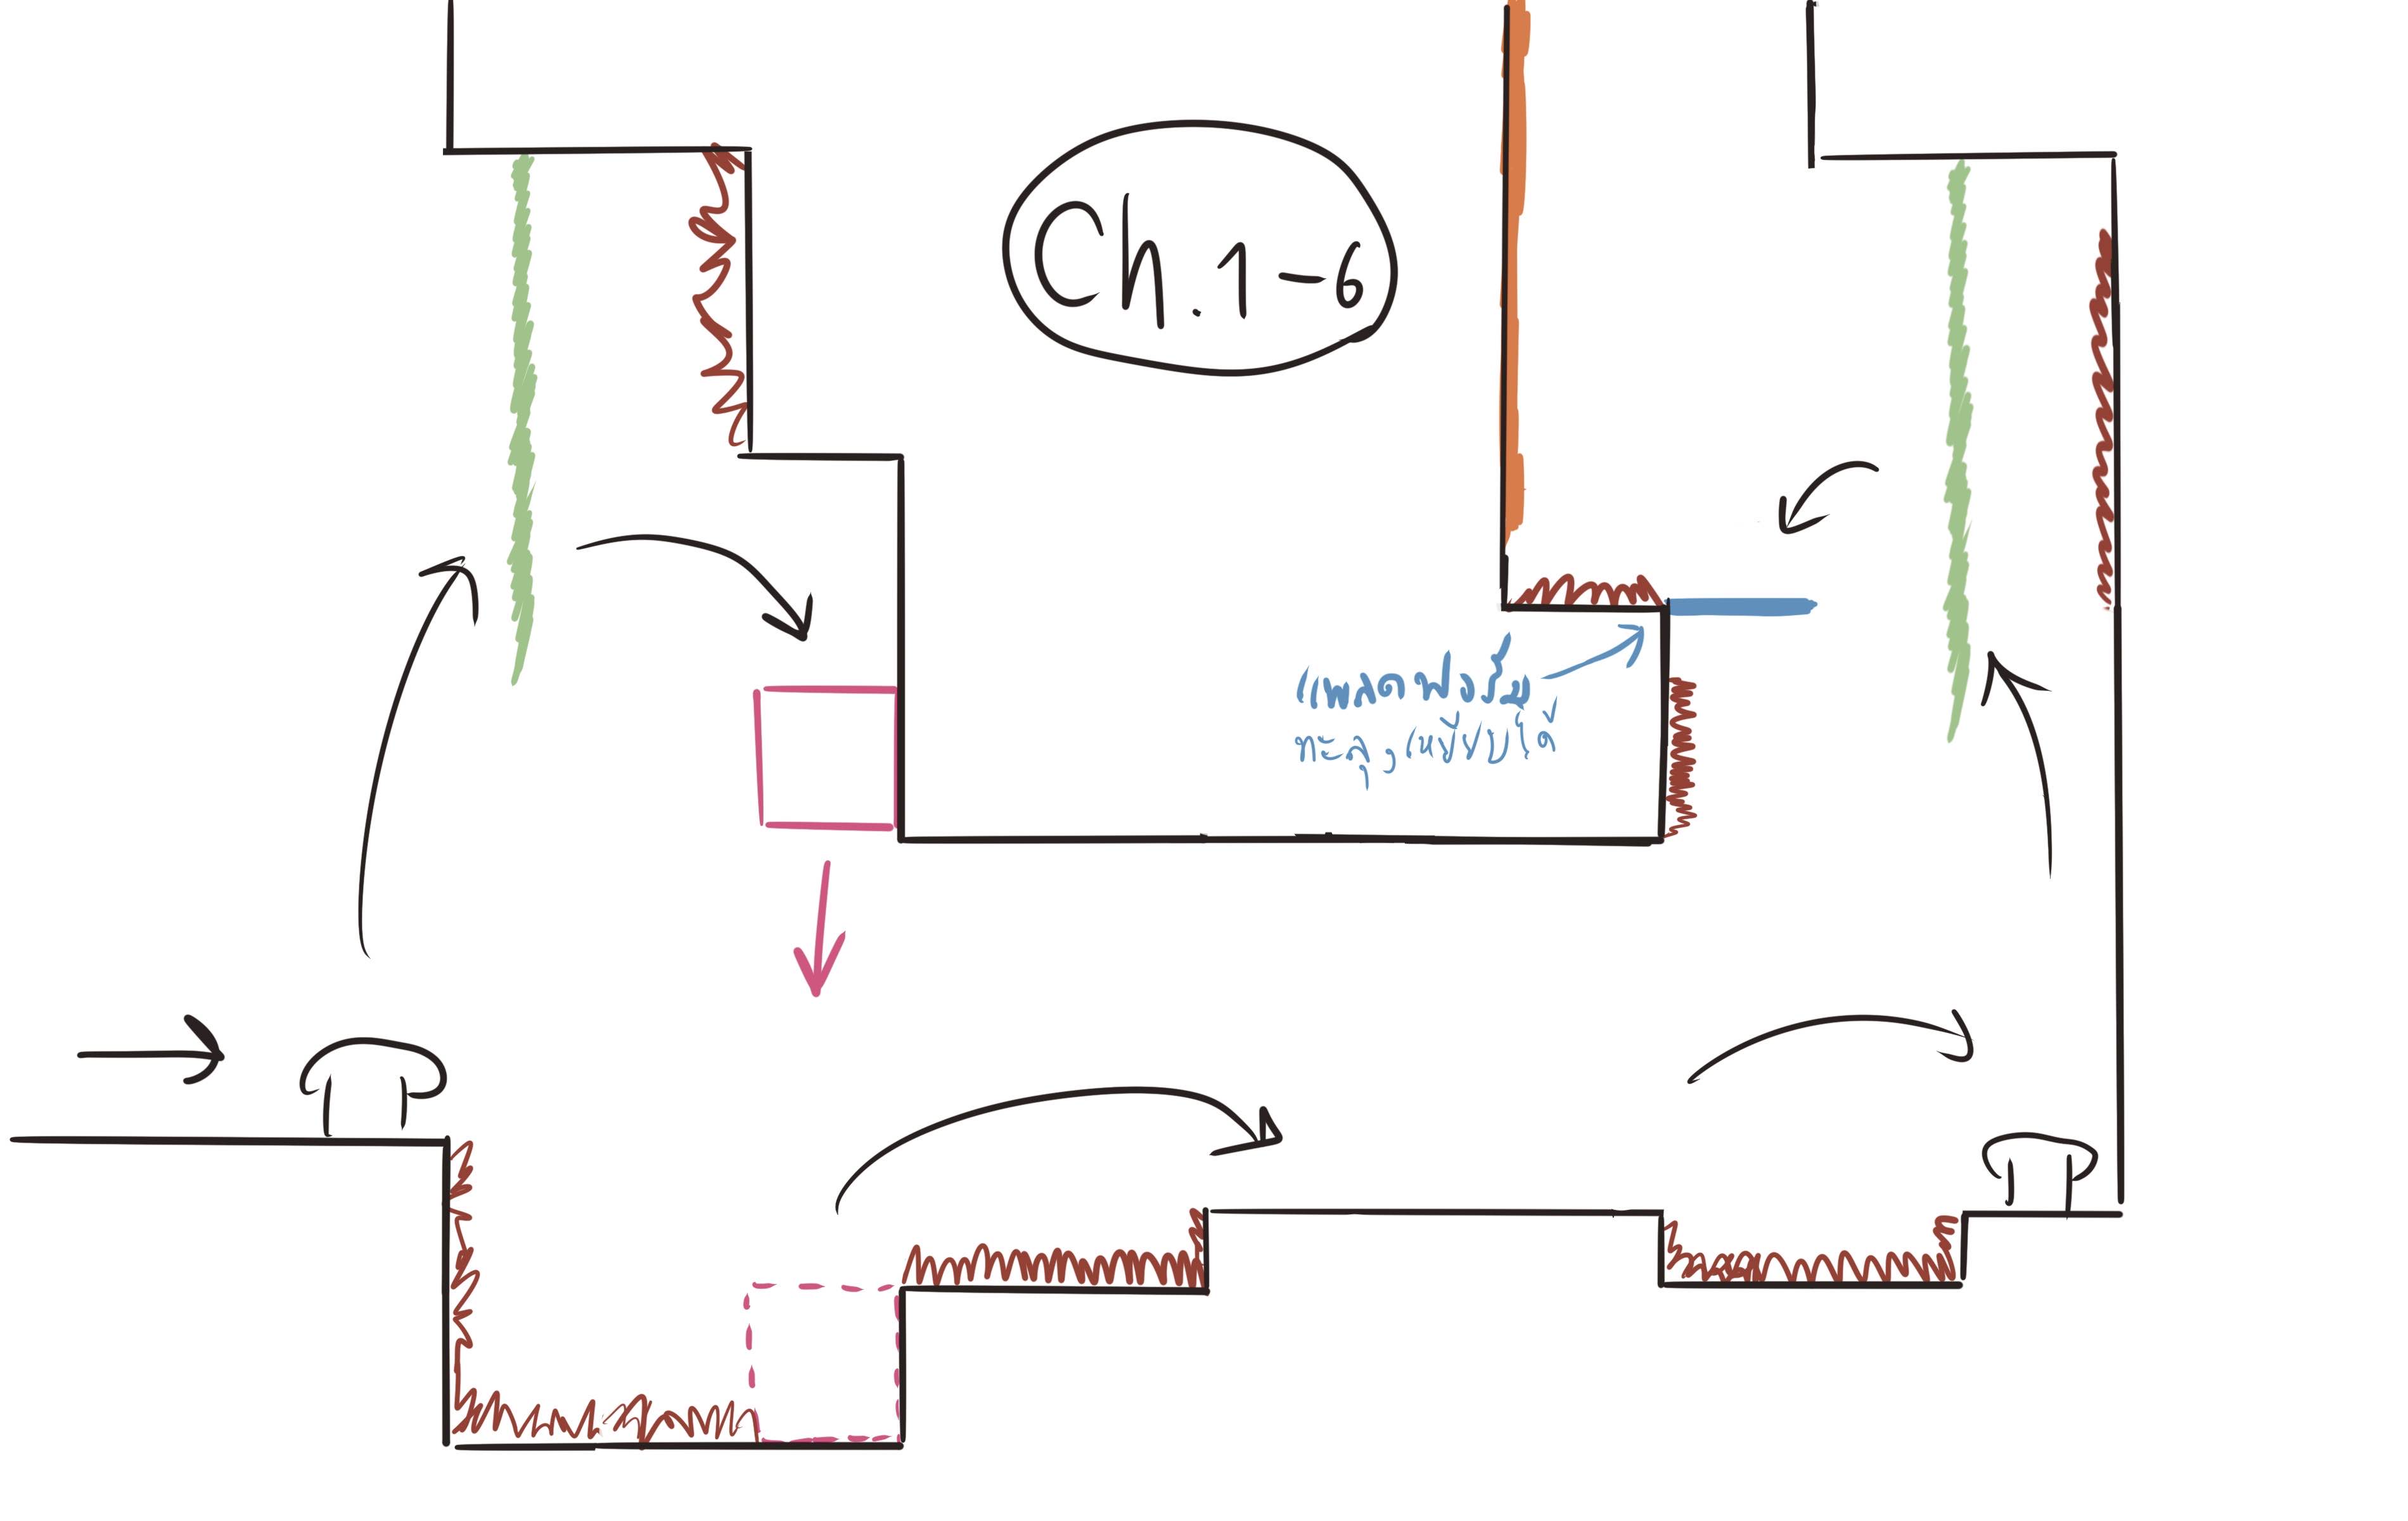 Ch.1-6
แพลตฟอร์ม
ทะลุ, เหยียบได้